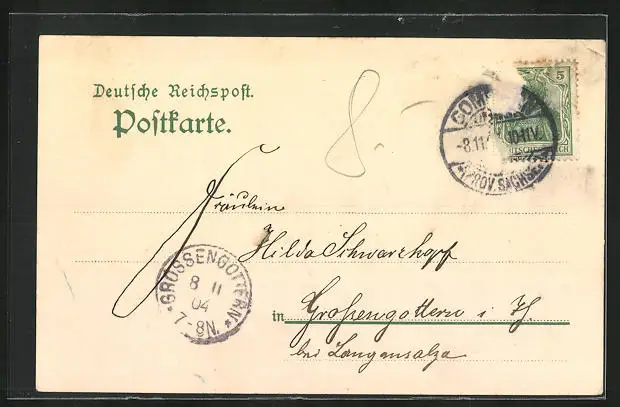 Deutsche Reichspost.
Postkarte.
8.-
5
-8.11
10-11V.
(PROV. SACHSEN)
Fräulein
Hilda Schwarzkopf
GROSSENGOTTERN
8 11
04
7-8N.
in Großengottern i. Th.
bei Langensalza